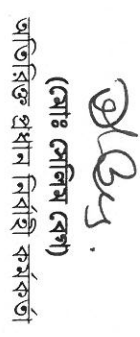 (মোঃ সেলিম রেগ)
অতিরিক্ত প্রধান নির্বাহী কর্মকর্তা